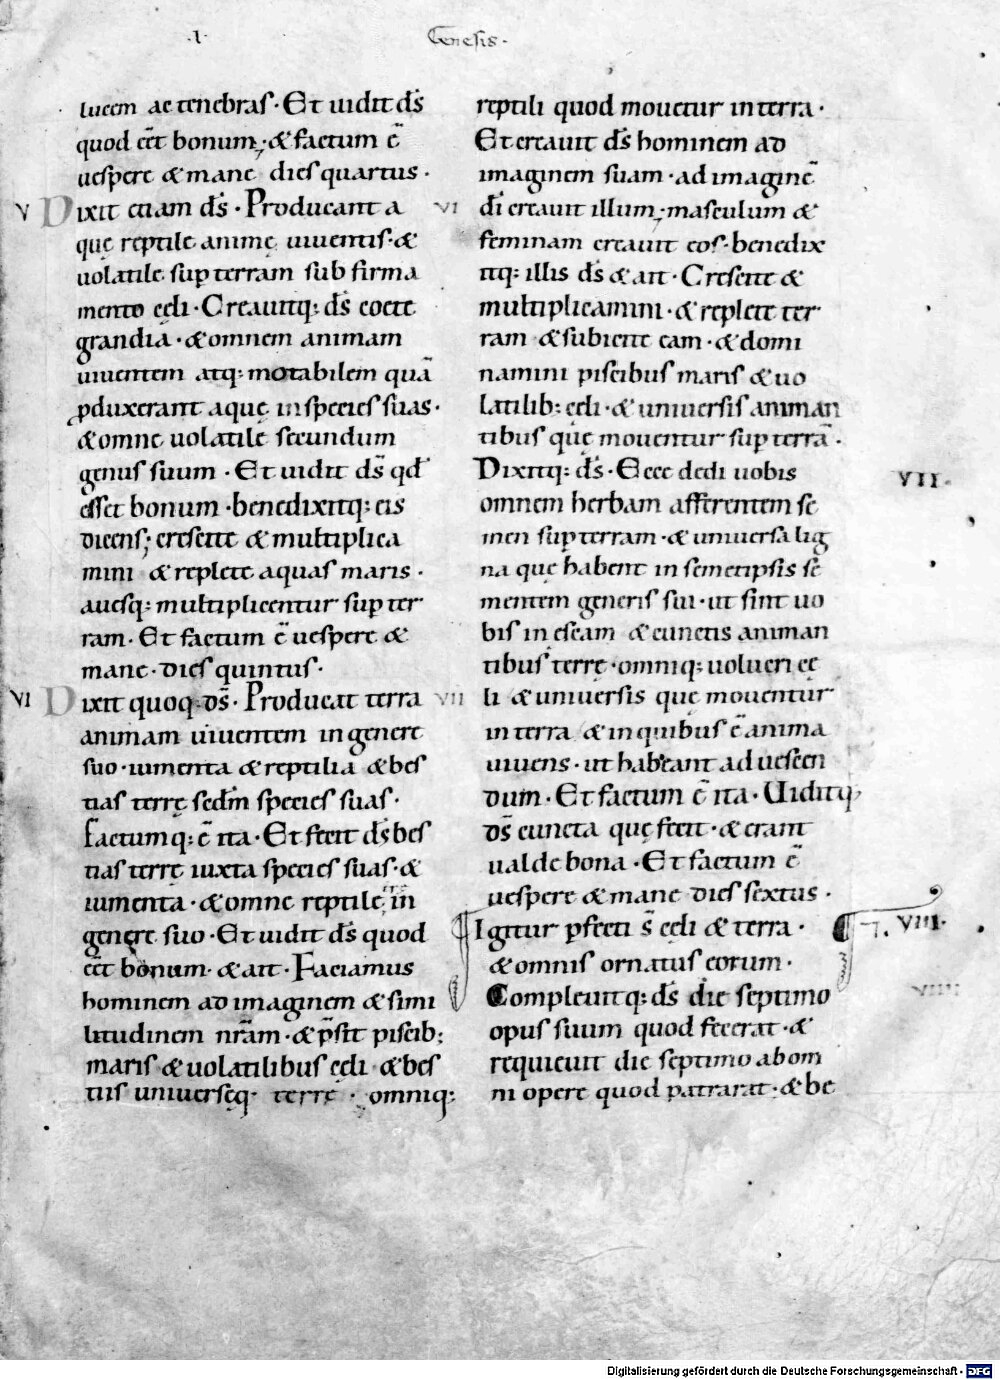 .I. Genesis.
lucem ac tenebras. Et uidit dr̄s
quod eēt bonum; & factum ē
uespere & mane dies quartus.
V Dixit etiam ds̄. Producant a
quę reptile animę uiuentis. &
uolatile. sup terram sub firma
mento cęli. Creauitq: ds̄ coete
grandia. & omnem animam
uiuentem atq: motabilem quā
pduxerant aquę in species suas.
& omne uolatile secundum
genus suum. Et uidit ds̄ qd̄
esset bonum. benedixitq: eis
dicens; crescite & multiplica
mini & replete aquas maris.
auesq: multiplicentur sup ter
ram. Et factum ē uespere &
mane. dies quintus.
VI Dixit quoq. ds̄. Producat terra
animam uiuentem in genere
suo. iumenta & reptilia & bes
tias terrę scdm̄ species suas.
Factumq: ē ita. Et fecit ds̄ bes
tias terrę iuxta species suas. &
iumenta. & omne reptile in
genere suo. Et uidit ds̄ quod
eēt bonum. & ait. Faciamus
hominem ad imaginem & simi
litudinem nr̄am. & p̄sit piscib;
maris & uolatilibus cęli & bes
tiis uniuersęq. terrę. omniq:
reptili quod mouetur in terra.
Et creauit ds̄ hominem ad
imaginem suam. ad imaginē
VI dī creauit illum; masculum &
feminam creauit eos. benedix
itq: illis ds̄ & ait. Crescite &
multiplicamini. & replete ter
ram & subicite eam. & domi
namini piscibus maris & uo
latilib: cęli. & uniuersis animan
tibus quę mouentur sup terrā.
Dixitq: ds̄. Ecce dedi uobis VII.
omnem herbam afferentem se
men sup terram. & uniuersa lig
na quę habent in semetipsis se
mentem generis sui. ut sint uo
bis in escam & cunctis animan
tibus terrę. omniq: uolucri cę
VII li & uniuersis quę mouentur
in terra & in quibus ē anima
uiuens. ut habeant ad uescen
dum. Et factum ē ita. Uiditq;
ds̄ cuncta quę fecit. & erant
ualde bona. Et factum ē
uespere & mane dies sextus.
Igitur pfecti s̄ cęli & terra. VIII.
& omnis ornatus eorum.
Compleuitq: ds̄ die septimo VIIII
opus suum quod fecerat. &
requieuit die septimo ab om
ni opere quod patrarat. & be
Digitalisierung gefördert durch die Deutsche Forschungsgemeinschaft - DFG